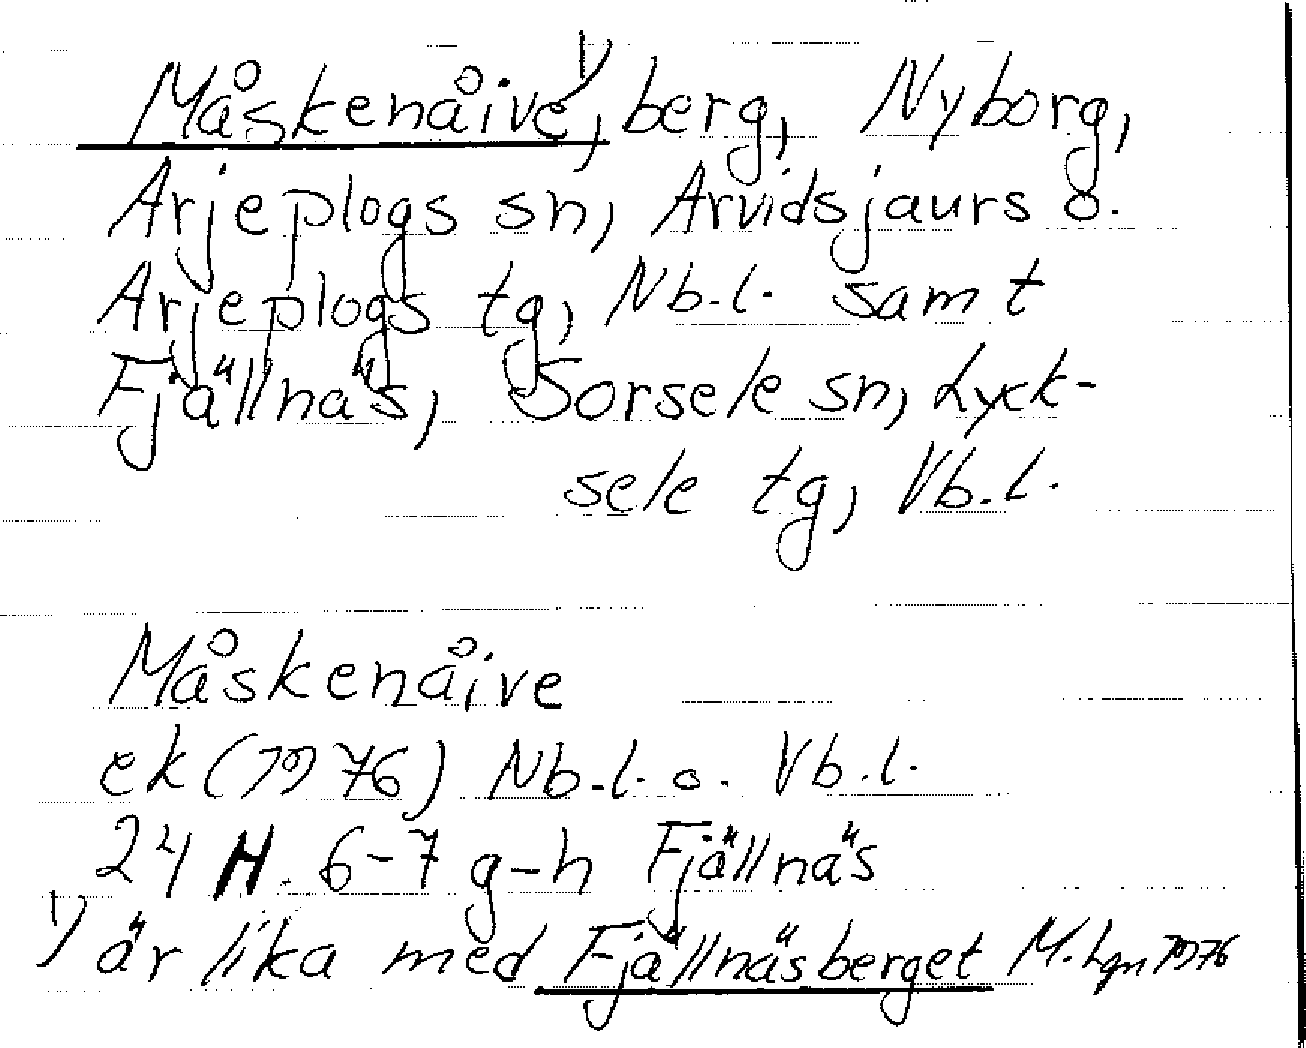 Måskenåive¹⁾, berg, Nyborg,
Arjeplogs sn, Arvidsjaurs o.
Arjeplogs tg, Nb.l. samt
Fjällnäs, Sorsele sn, Lyck-
sele tg, Vb.l.
Måskenåive
ek (1976) Nb.l. o. Vb.l.
24 H. 6-7 g-h Fjällnäs
¹⁾ är lika med Fjällnäsberget M. Lgn 1976